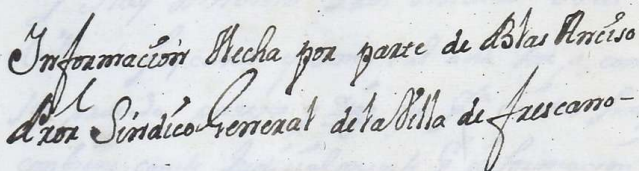 Informacion Hecha por parte de Blas Anciso
Pror Sindico General de la Villa de frescano-